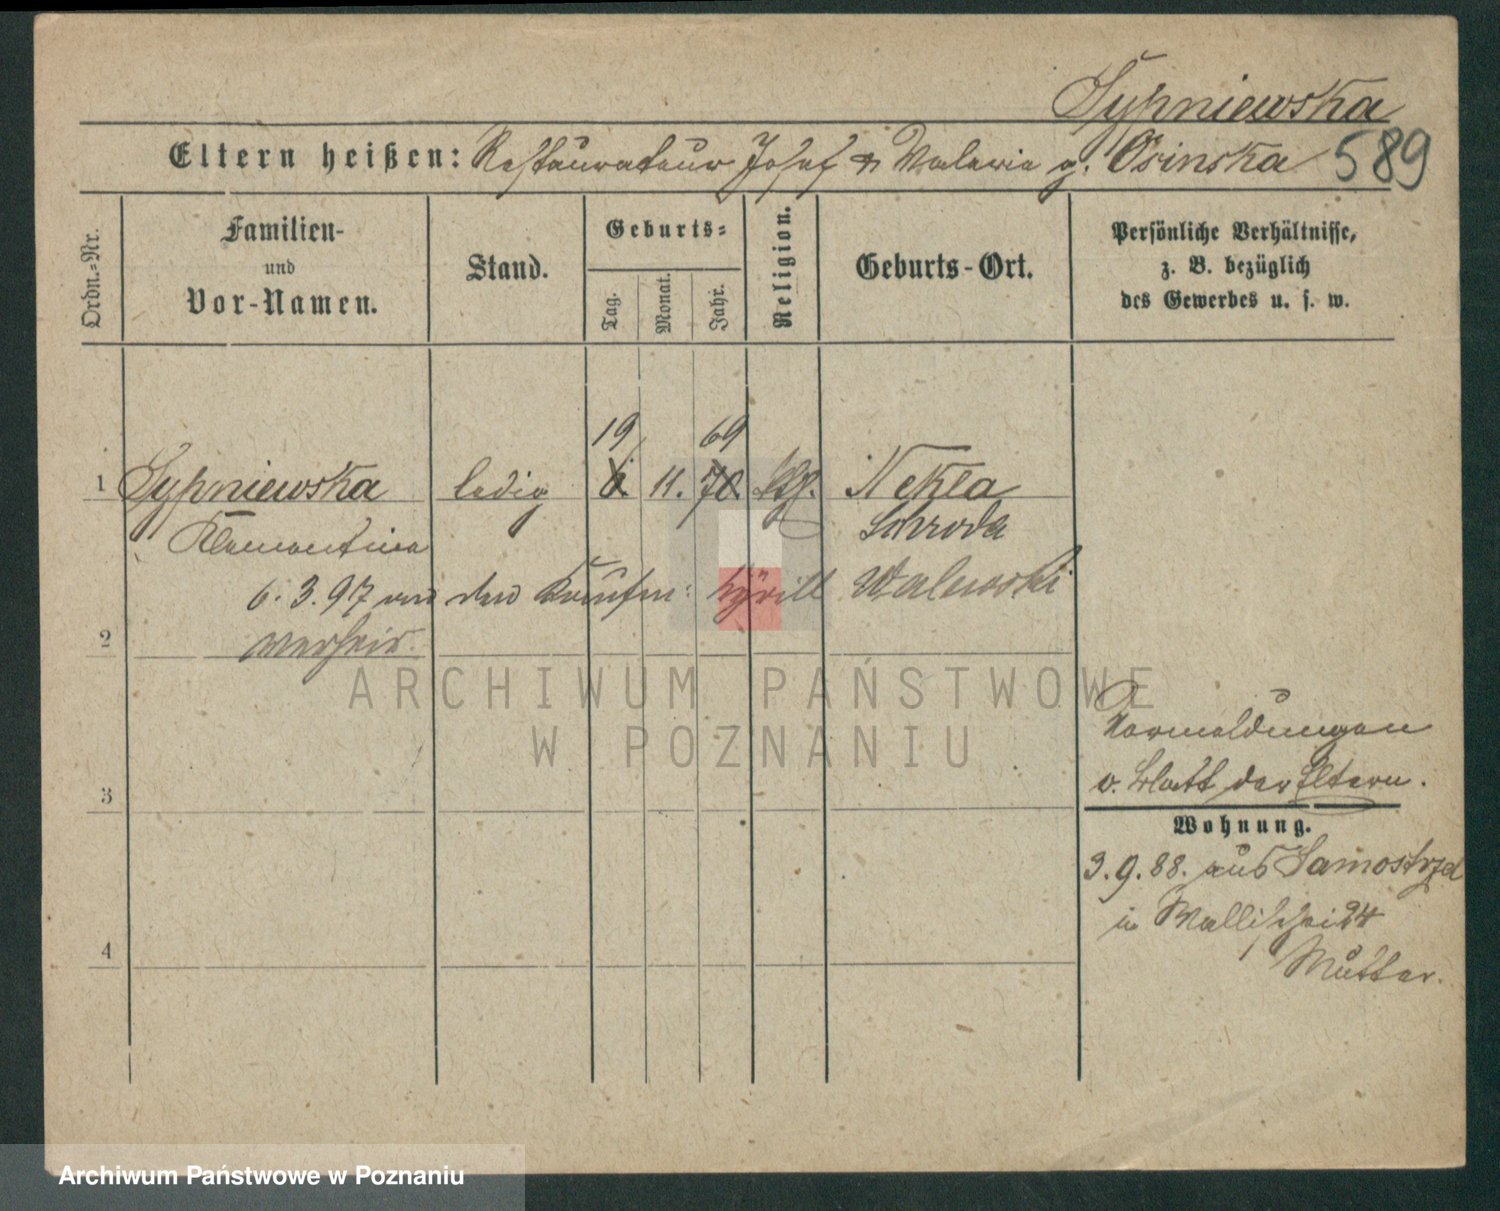 Sypniewska
Eltern heißen: Restaurateur Josef & Valeria g. Osinska 589
Ordn.=Nr.
Familien-
und
Vor-Namen.
Stand.
Geburts=
Tag.
Monat.
Jahr.
Religion.
Geburts-Ort.
Persönliche Verhältnisse,
z. B. bezüglich
des Gewerbes u. s. w.
19 69
1 Sypniewska ledig 6. 11. 70. ktl. Nekla
Klementina Schroda
6. 3. 97 mit dem Kaufm: Cyrill Walewski
verheir.
2
ARCHIWUM PAŃSTWOWE
W POZNANIU
Vormeldungen
v. Blatt der Eltern.
3
Wohnung.
3. 9. 88. aus Samostrzel
in Wallischei 24
Mutter.
4
Archiwum Państwowe w Poznaniu